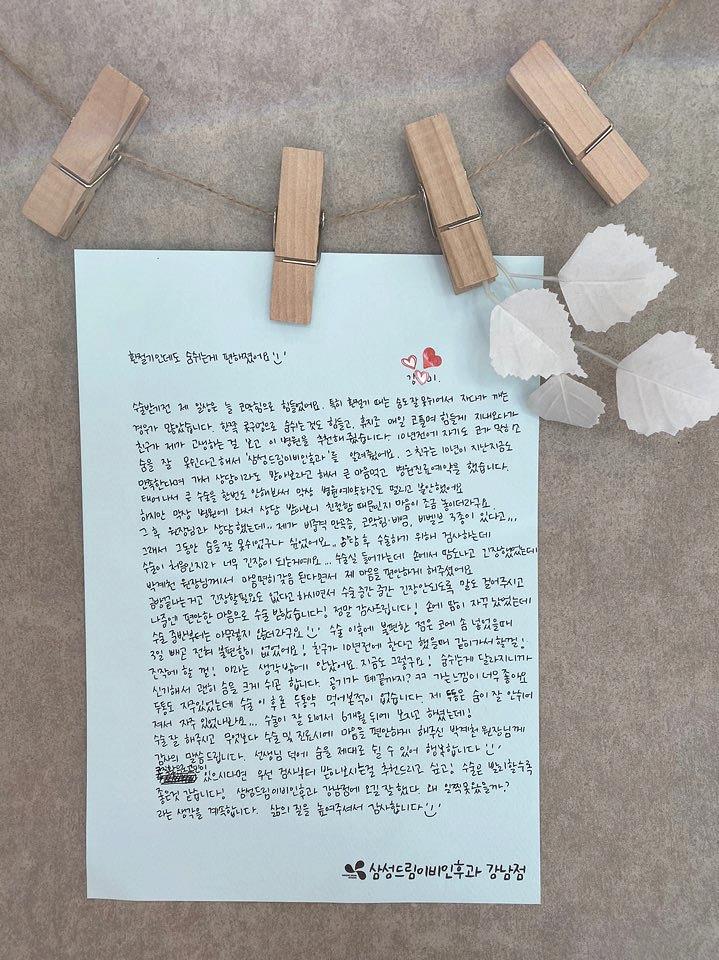 환절기인데도 숨쉬는게 편해졌어요
수술받기전 제 일상은 늘 코막힘으로 힘들었어요. 특히 환절기 때는 숨도 잘 못쉬어서 자다가 깨는
경우가 많았습니다. 한쪽 콧구멍으로 숨쉬는 것도 힘들고, 휴지로 매일 코풀며 힘들게 지내오다가
친구가 제가 고생하는 걸 보고 이 병원을 추천해줬습니다. 10년전에 자기도 코가 막히고
숨을 잘 못쉰다고해서 '삼성드림이비인후과'를 알려줬어요. 그 친구는 10년이 지난지금도
만족한다며 가서 상담이라도 받아보라고 해서 큰 마음먹고 병원진료예약을 했습니다.
태어나서 큰 수술을 한번도 안해봐서 막상 병원예약하고도 떨리고 불안했어요
하지만 막상 병원에 와서 상담 받아보니 친절함 때문인지 마음이 조금 놓이더라구요
그 후 원장님과 상담했는데.. 제가 비중격 만곡증, 코막힘·비염, 비밸브 3종이 있다고...
그래서 그동안 숨을 잘 못쉬었구나 싶었어요.. 상담 후 수술하기 위해 검사하는데
수술이 처음인지라 너무 긴장이 되는거예요... 수술실 들어가는데 손에서 땀도나고 긴장했었는데
박계천 원장님께서 마음편히갖을 된다면서 제 마음을 편안하게 해주셨어요
금방끝나는거고 긴장할필요도 없다고 하시면서 수술 중간 중간 긴장안되도록 말도 걸어주시고
나중엔 편안한 마음으로 수술 받았습니다! 정말 감사드립니다! 손에 땀이 자꾸 났었는데
수술 중반부터는 아무렇지 않더라구요 수술 이후에 불편한 점은 코에 솜 넣었을때
3일 빼곤 전혀 불편함이 없었어요! 친구가 10년전에 한다고 했을때 같이가서할걸!
진작에 할 걸! 이라는 생각밖에 안났어요 지금도 그렇구요! 숨쉬는게 달라지니까
신기해서 괜히 숨을 크게 쉬곤 합니다. 공기가 폐끝까지? ㅋㅋ 가는느낌이 너무 좋아요
두통도 자주있었는데 수술 이후론 두통약 먹어본적이 없습니다. 제 두통은 숨이 잘 안쉬어
져서 자주 있었나봐요... 수술이 잘 되어서 6개월 뒤에 보자고 하셨는데!
수술 잘 해주시고 무엇보다 수술 및 진료시에 마음을 편안하게 해주신 박계천 원장님께
감사의 말씀드립니다. 선생님 덕에 숨을 제대로 쉴 수 있어 행복합니다
있으시다면 우선 검사부터 받아보시는걸 추천드리고 싶고! 수술은 빨리할수록
좋은것 같습니다! 삼성드림이비인후과 강남점에 오길 잘 했다. 왜 일찍못왔을까?
라는 생각을 계속합니다. 삶의 질을 높여주셔서 감사합니다
삼성드림이비인후과 강남점